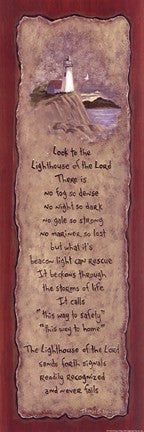 Look to the
Lighthouse of the Lord
There is
no fog so dense
no night so dark
no gale so strong
no mariner so lost
but what it's
beacon light can rescue
It beckons through
the storms of life
It calls
"this way to safety"
"this way to home"
The Lighthouse of the Lord
sends forth signals
readily recognized
and never fails